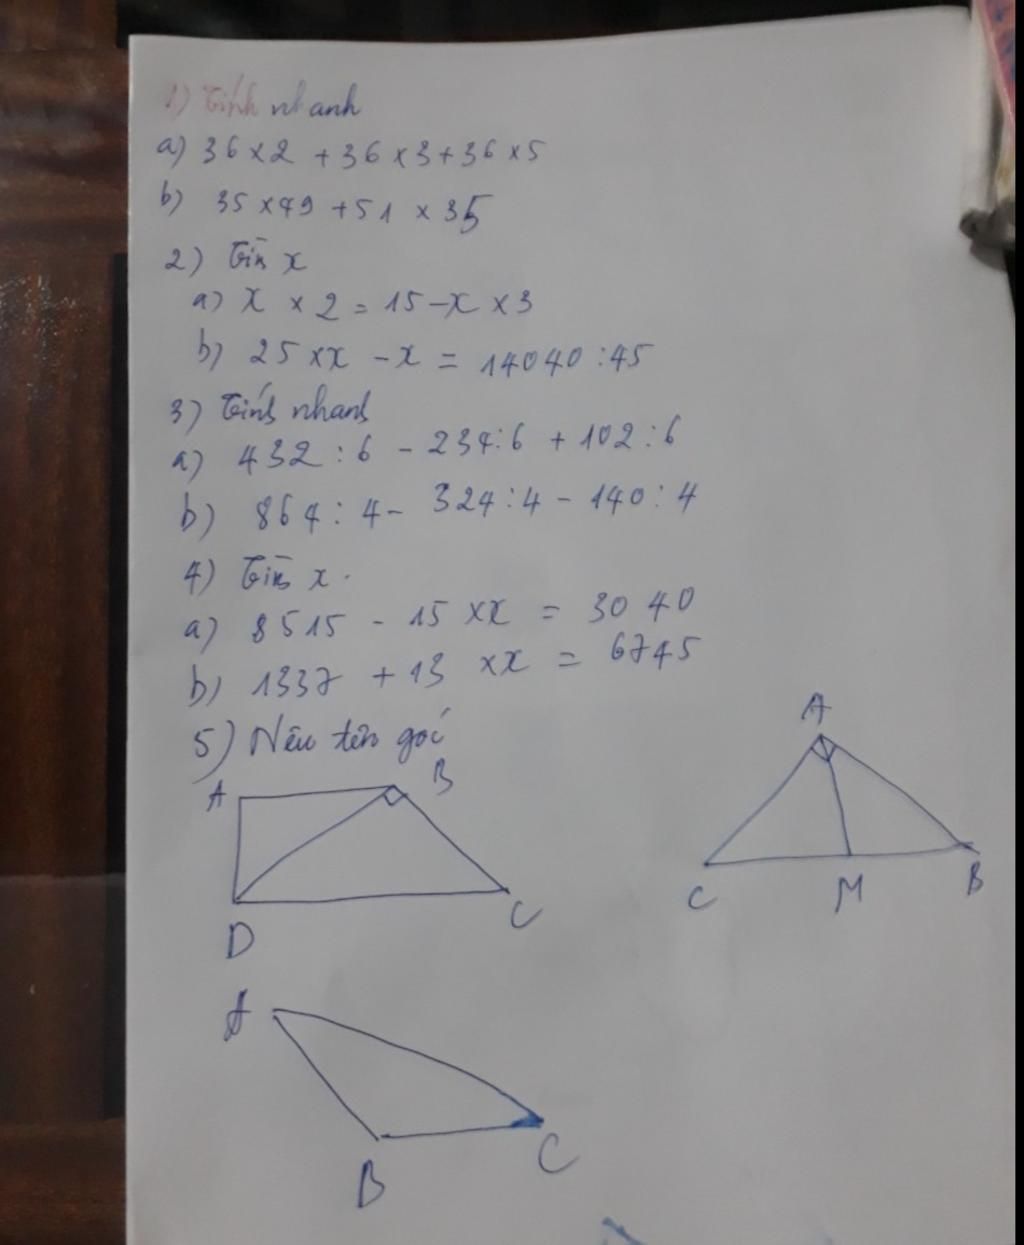 1) Tính nhanh
a) 36 × 2 + 36 × 3 + 36 × 5
b) 35 × 49 + 51 × 35
2) Tìm x
a) x × 2 = 15 - x × 3
b) 25 × x - x = 14040 : 45
3) Tính nhanh
a) 432 : 6 - 234 : 6 + 102 : 6
b) 864 : 4 - 324 : 4 - 140 : 4
4) Tìm x.
a) 8515 - 15 × x = 3040
b) 1337 + 13 × x = 6745
5) Nêu tên góc
A B
D C
A
C M B
A
B C